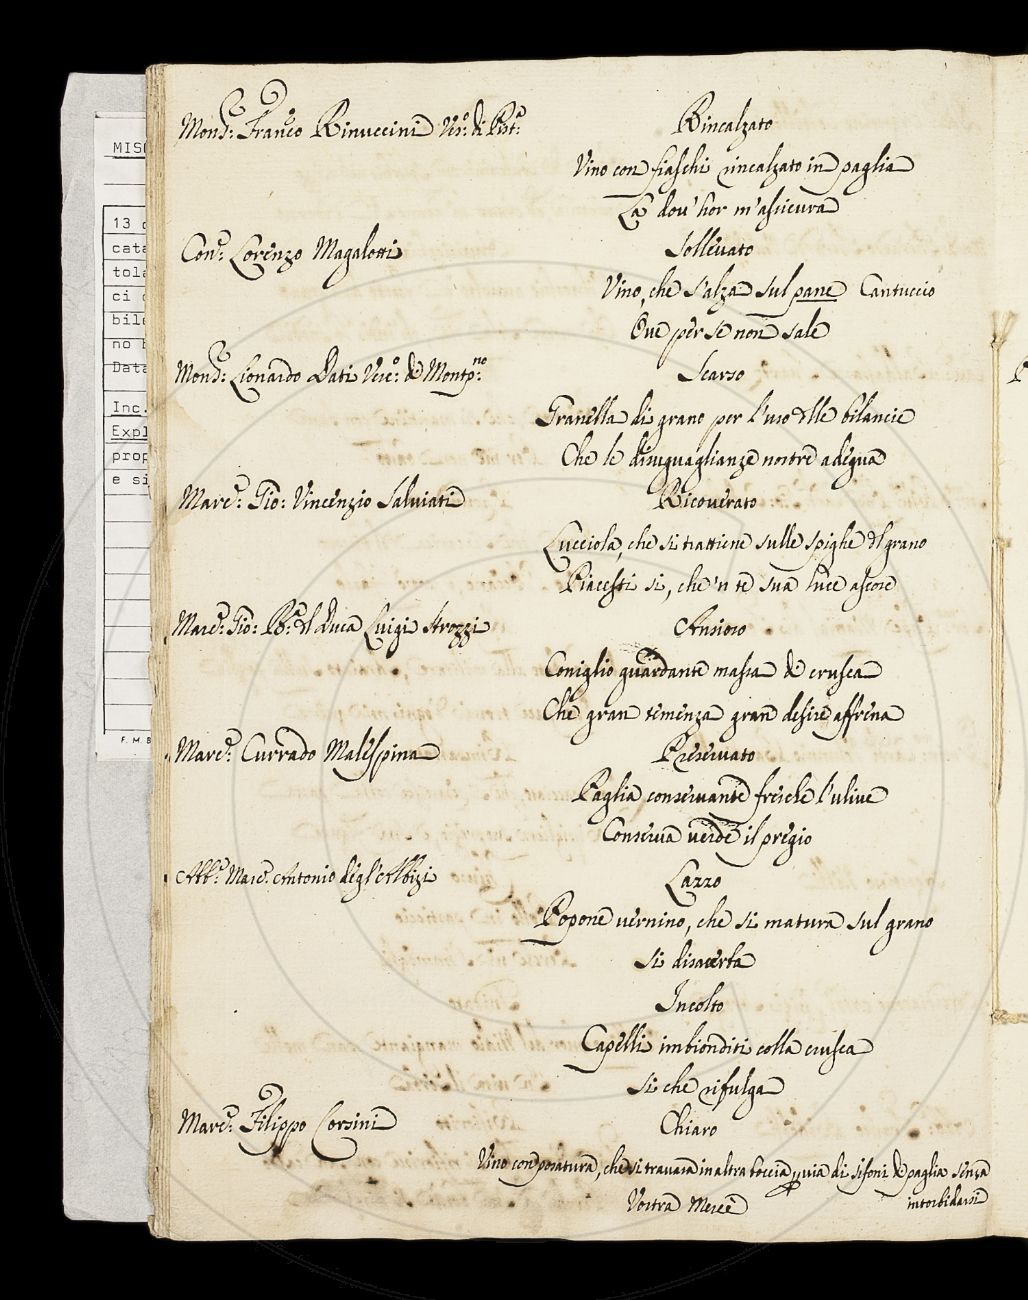 MISC
13 c
cata
tola
ci c
bile
no b
Data
Inc.
Expl
prop
e si
F. M. B
Mons.r Franc.o Rinuccini Vs.o di Pist.a
Rincalzato
Vino con fiaschi rincalzato in paglia
La dou' hor m'assicura
Con.e Lorenzo Magalotti
Sollevato
Vino, che s'alza sul pane Cantuccio
Oue per se non sale
Mons.r Lionardo Dati Vesc.o de Montp.no
Scarso
Granella di grano per l'uso delle bilancie
Che le disuguaglianze nostre adegua
Marc.e Gio: Vincenzio Salviati
Ricouerato
Lucciola, che si trattiene sulle spighe del grano
Piacesti si, che 'n te sua luce ascose
Marc.e Gio: Ba.a del Duca Luigi Strozzi
Ansioso
Coniglio guardante massa de crusca
Che gran temenza gran desire affrena
Marc.e Currado Malespina
Preseruato
Paglia conseruante fresche l'uliue
Conserva verde il pregio
Abb.e Marc.e Antonio degl'Albizi
Lazzo
Popone vernino, che si matura sul grano
Si disacerba
Incolto
Capelli imbionditi colla crusca
Si che rifulga
Marc.e Filippo Corsini
Chiaro
Vino con posatura, che si trauasa in altra boccia p uia di sifoni de paglia senza
intorbidarsi
Vostra Mercè